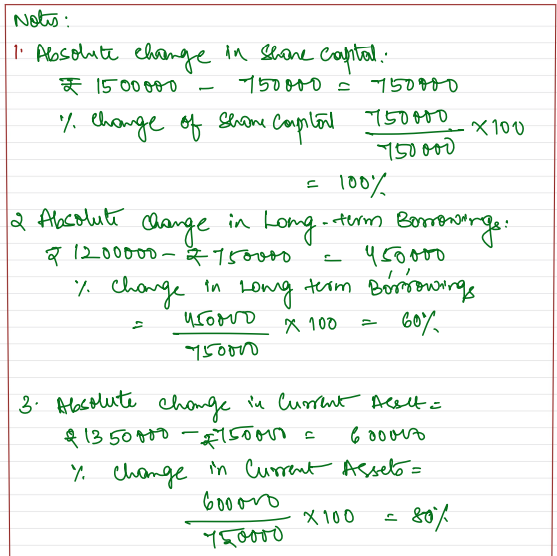 Notes:
1. Absolute change in Share Capital:
₹ 1500000 - 750000 = 750000
% change of Share Capital 750000 / 750000 × 100
= 100%
2 Absolute change in Long-term Borrowings:
₹ 1200000 - ₹ 750000 = 450000
% change in Long term Borrowings
= 450000 / 750000 × 100 = 60%
3. Absolute change in Current Asset =
₹ 1350000 - ₹750000 = 600000
% change in Current Assets =
600000 / 750000 × 100 = 80%